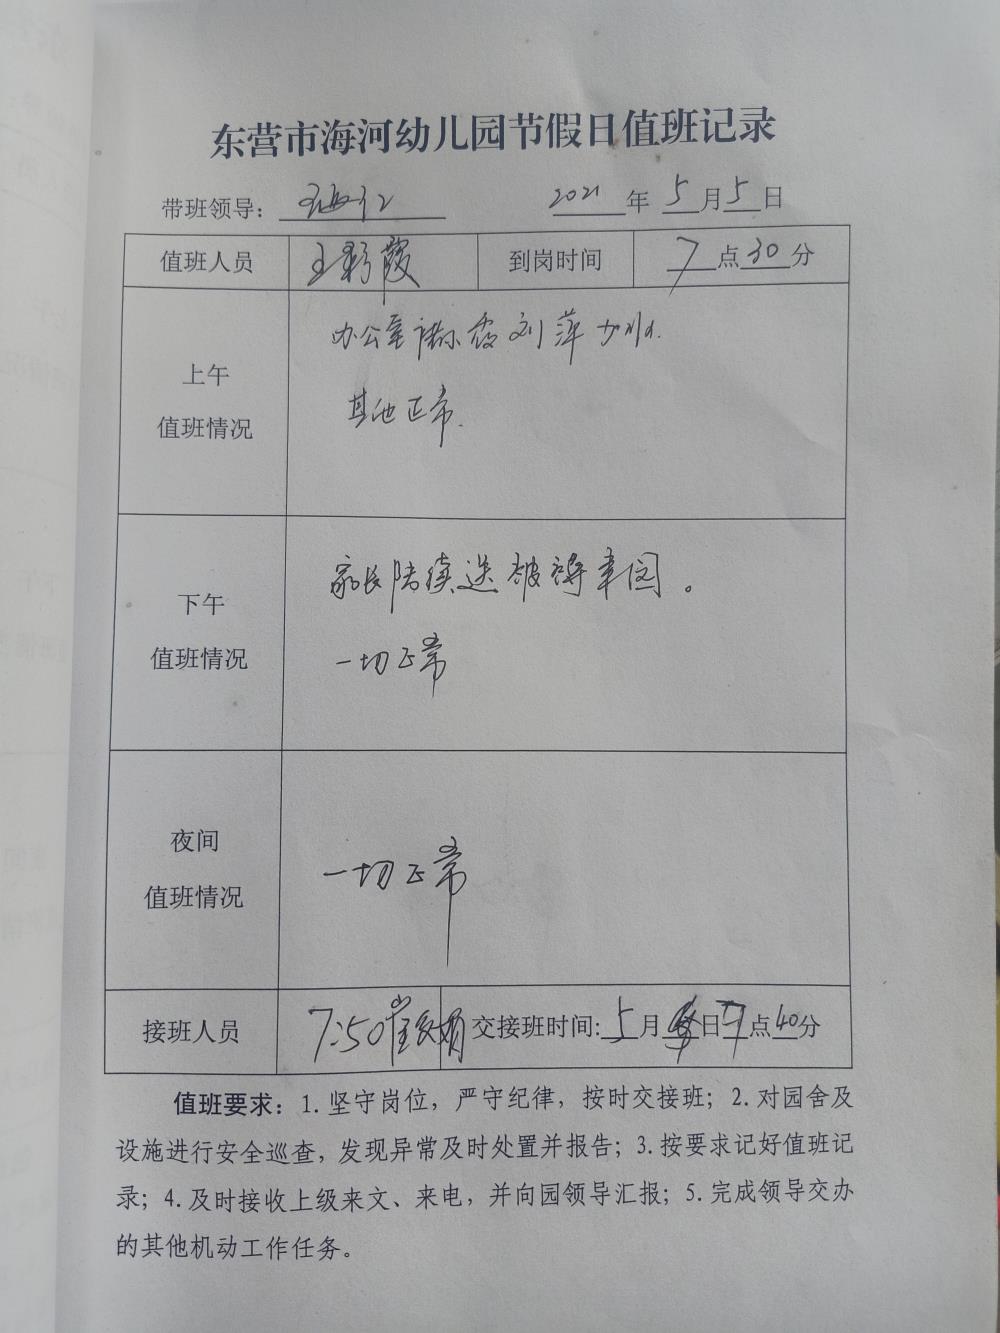 东营市海河幼儿园节假日值班记录
带班领导: 2021年5月5日
值班人员 王彩霞 到岗时间 7点30分
上午
值班情况
办公室 霞刘萍加班.
其他正常.
下午
值班情况
家长陆续送被褥来园。
一切正常
夜间
值班情况
一切正常
接班人员 7:50崔 交接班时间:5月 日7点40分
值班要求: 1. 坚守岗位, 严守纪律, 按时交接班; 2. 对园舍及
设施进行安全巡查, 发现异常及时处置并报告; 3. 按要求记好值班记
录; 4. 及时接收上级来文、来电, 并向园领导汇报; 5. 完成领导交办
的其他机动工作任务。